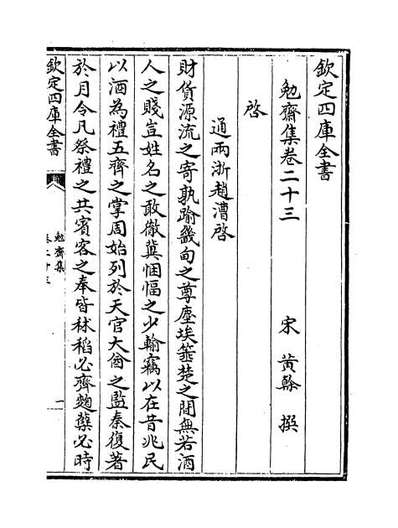 欽定四庫全書
勉齋集卷二十三
宋 黃榦 撰
啓
通兩浙趙漕啓
財貨源流之寄孰踰畿甸之尊塵埃箠楚之間無若酒
人之賤豈姓名之敢徹冀悃愊之少輸竊以在昔兆民
以酒為禮五齊之掌周始列於天官大酋之監秦復著
於月令凡祭禮之共賓客之奉皆秫稻必齊麴糵必時
欽定四庫全書
勉齋集
卷二十三
一